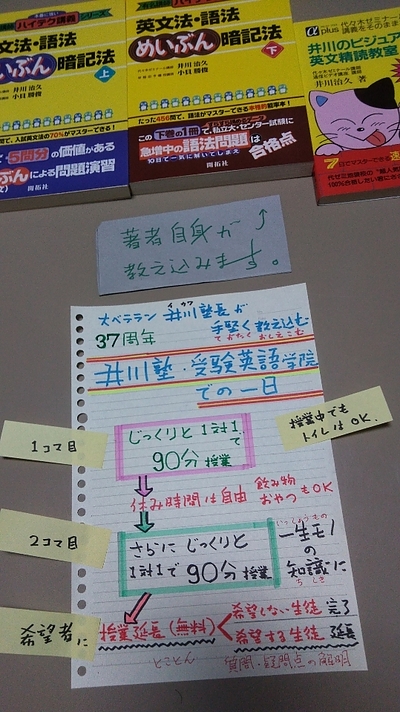 ハイテク講義
英文法・語法
めいぶん暗記法 上
井川治久
小貝勝俊
入試英文法の70%がマスターできる!
5問分の価値がある
ぶんによる問題演習
開拓社
ハイテク講義
英文法・語法
めいぶん暗記法 下
井川治久
小貝勝俊
たった456問で、語法がマスターできる
この下巻の1冊で、私立大・センター試験に
急増中の語法問題は合格点
10日で一気に解いてしまえ
開拓社
α plus
代々木ゼミナール
講義をそのまま
井川のビジュアル
英文精読教室
井川治久 著
7日でマスターできる
著者自身が
教え込みます。
大ベテラン 井川塾長が
37周年
手堅く教え込む
てがたくおしえこむ
井川塾・受験英語学院
での一日
授業中でも
トイレはOK.
1コマ目
じっくりと 1対1で
90分 授業
休み時間は自由 飲み物 おやつもOK
2コマ目
さらに じっくりと
1対1で 90分 授業
一生モノ
の
知識に
ちしき
希望者に
授業延長 (無料)
希望しない生徒 完了
希望する生徒 延長
質問・疑問点の解明